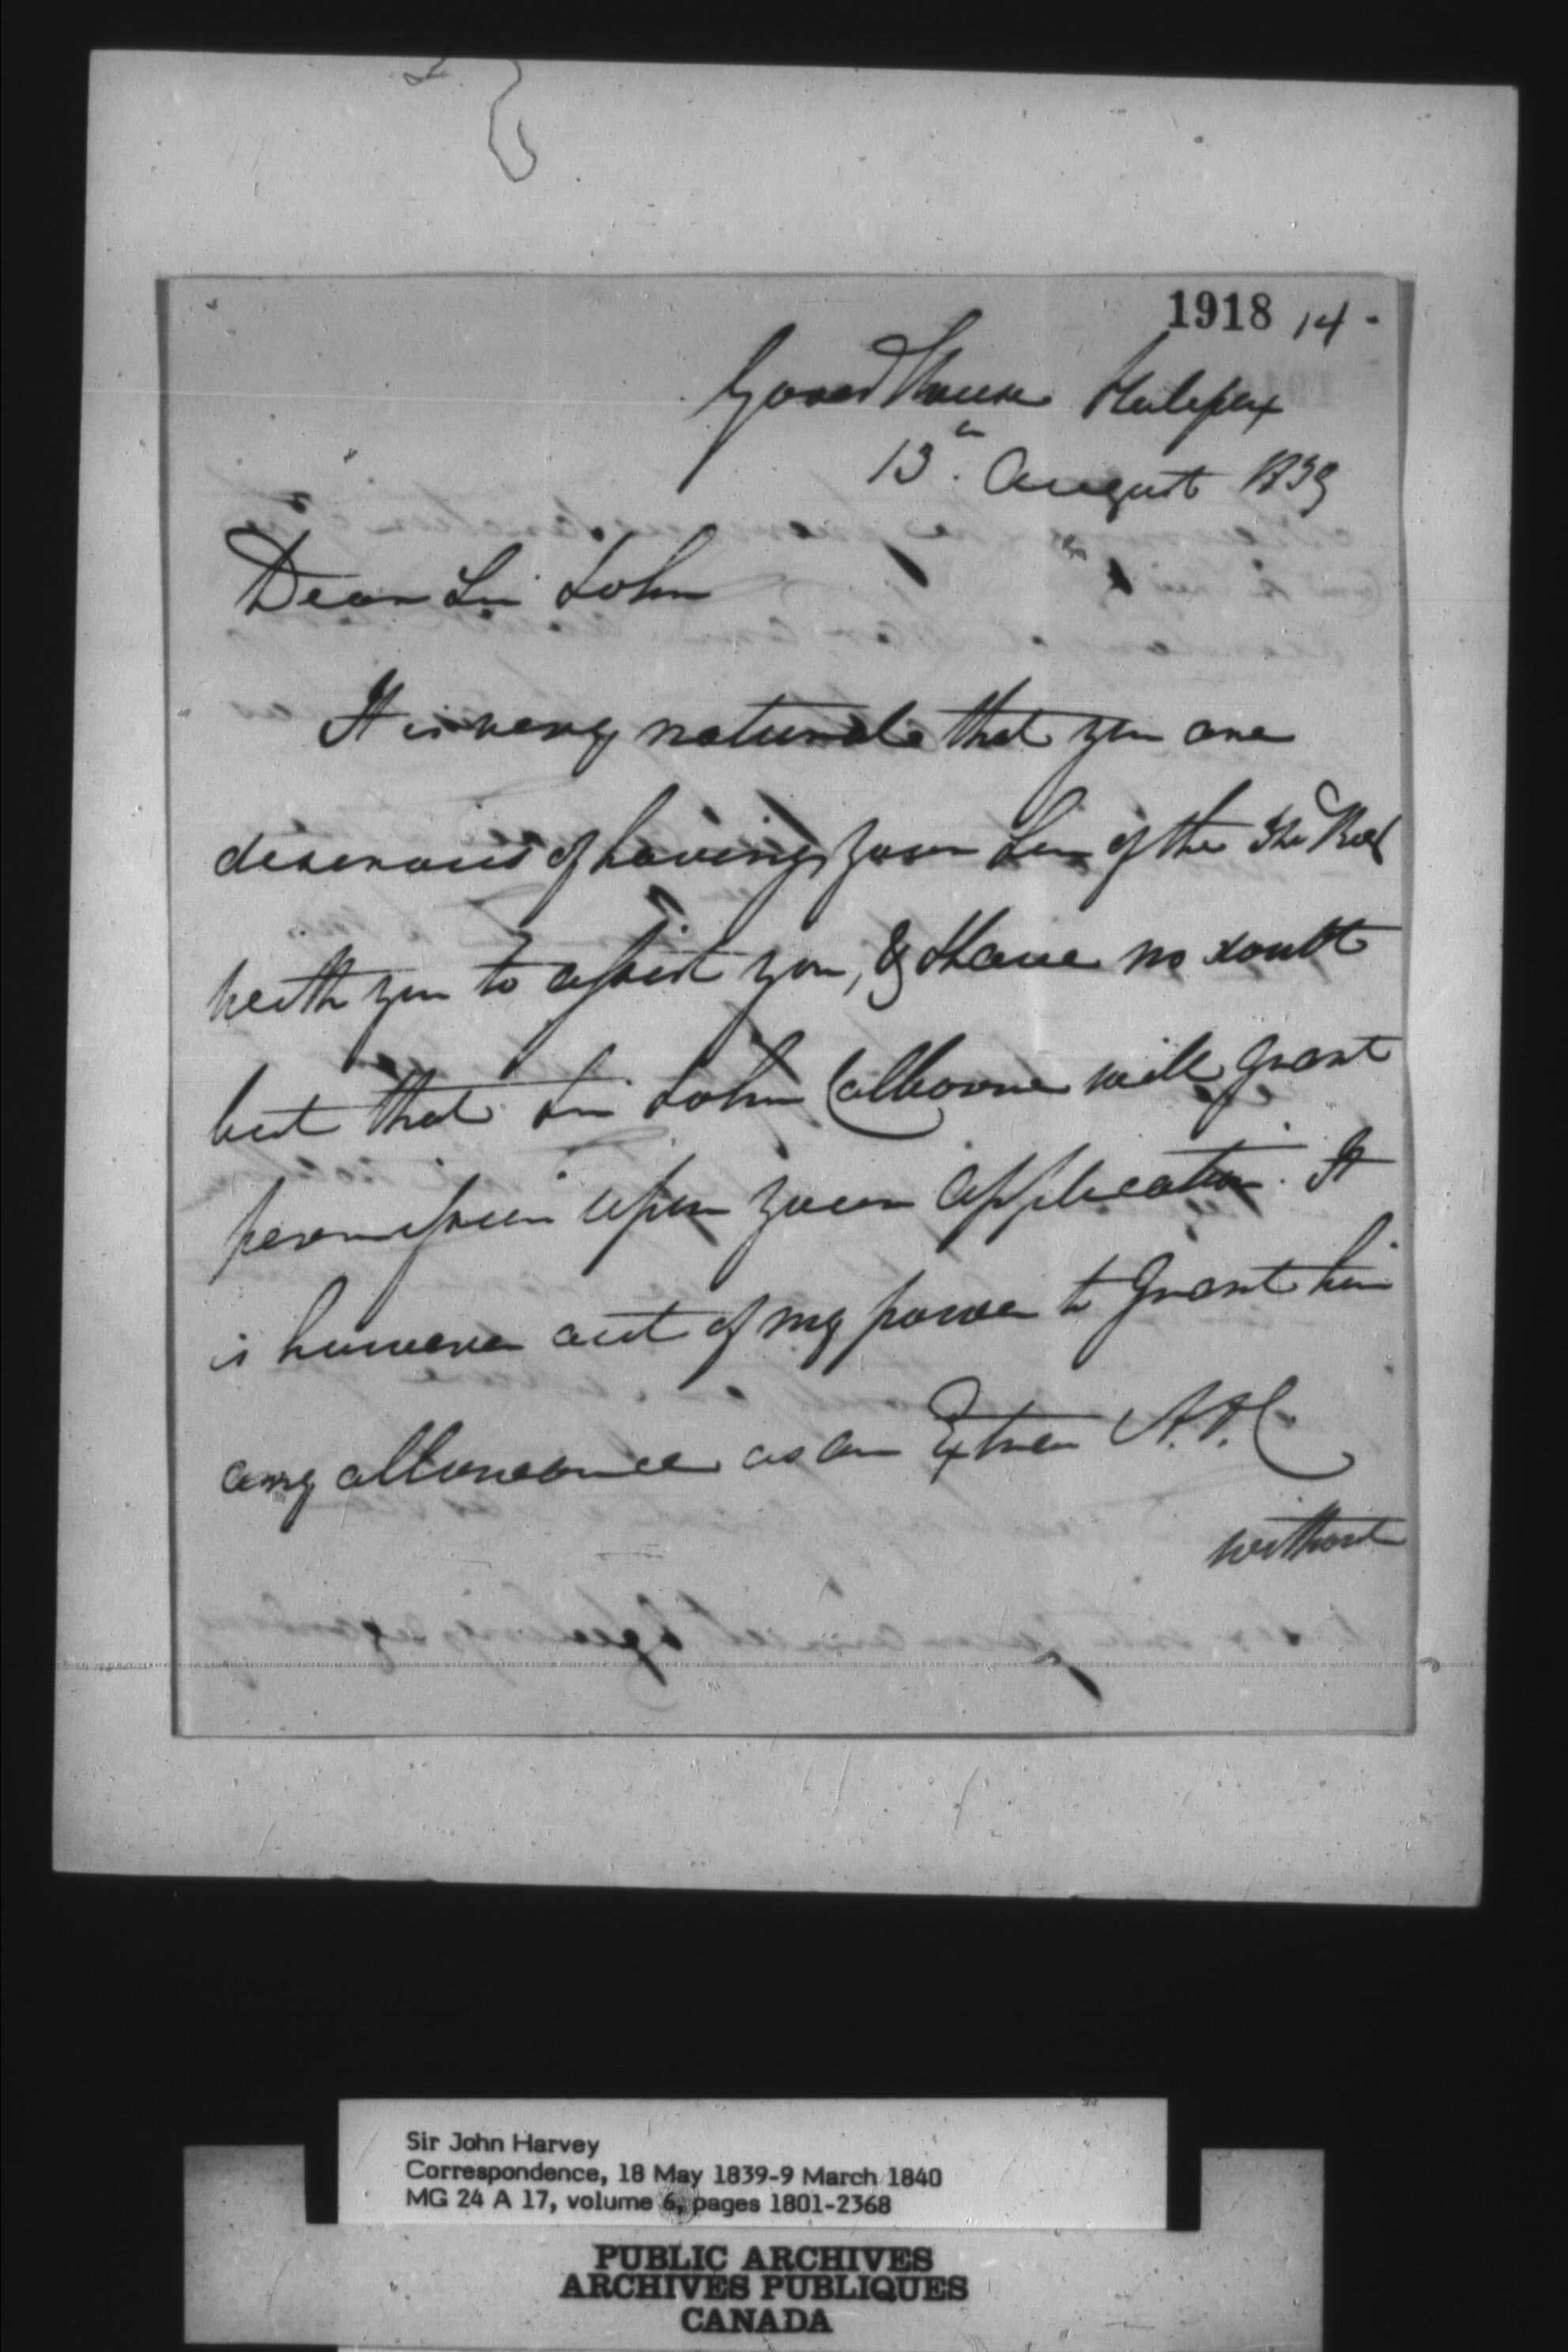 1918 14-
Govt House Halifax
13th August 1839
Dear Sir John
It is very natural that you are
desirous of having your Son of the
with you to assist you, & I have no doubt
but that Sir John Colborne will grant
permission upon your application. It
is however out of my power to grant him
any allowance as an Extra A.D.C
without
Sir John Harvey
Correspondence, 18 May 1839-9 March 1840
MG 24 A 17, volume 6, pages 1801-2368
PUBLIC ARCHIVES
ARCHIVES PUBLIQUES
CANADA